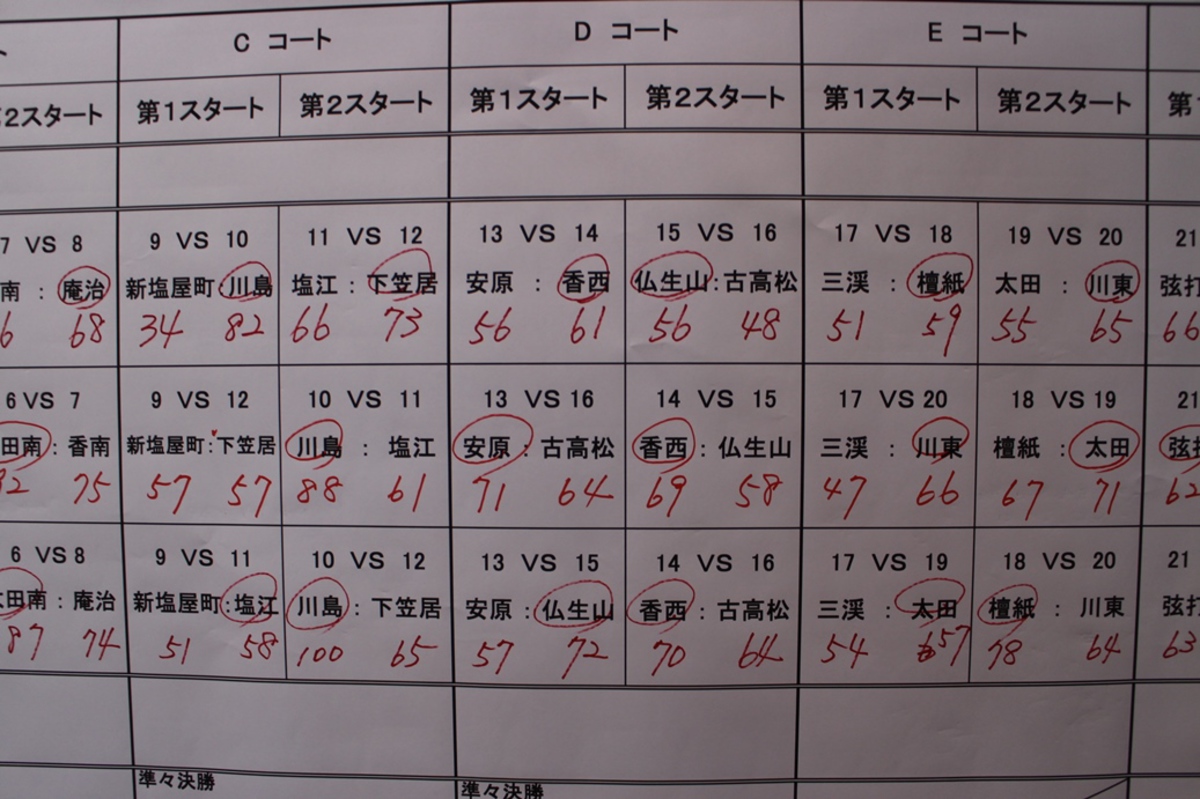 ト C コート D コート E コート
第2スタート 第1スタート 第2スタート 第1スタート 第2スタート 第1スタート 第2スタート 第
7 VS 8 9 VS 10 11 VS 12 13 VS 14 15 VS 16 17 VS 18 19 VS 20 21
南 : 庵治 新塩屋町:川島 塩江 : 下笠居 安原 : 香西 仏生山:古高松 三渓 : 檀紙 太田 : 川東 弦打
6 68 34 82 66 73 56 61 56 48 51 59 55 65 66
6 VS 7 9 VS 12 10 VS 11 13 VS 16 14 VS 15 17 VS 20 18 VS 19 21
田南 : 香南 新塩屋町:下笠居 川島 : 塩江 安原 : 古高松 香西 : 仏生山 三渓 : 川東 檀紙 : 太田 弦打
92 75 57 57 88 61 71 64 69 58 47 66 67 71 62
6 VS 8 9 VS 11 10 VS 12 13 VS 15 14 VS 16 17 VS 19 18 VS 20 21
太田南 : 庵治 新塩屋町:塩江 川島 : 下笠居 安原 : 仏生山 香西 : 古高松 三渓 : 太田 檀紙 : 川東 弦打
87 74 51 58 100 65 57 72 70 64 54 57 78 64 63
準々決勝 準々決勝